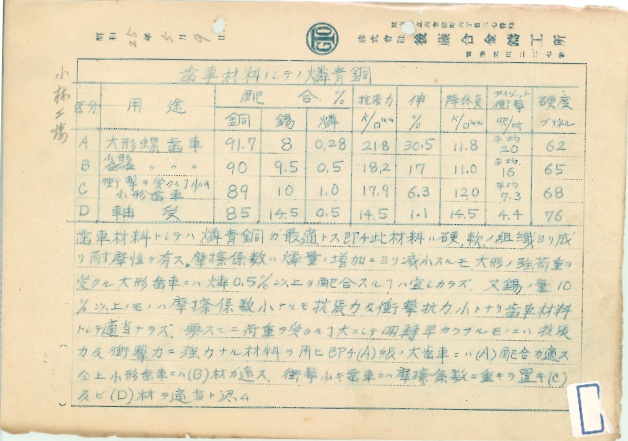 昭和 25年 5月 9日
株式會社 後藤合金鑄工所
小林工場
歯車材料トシテノ燐青銅
区分 用途 配合% 抗張力 伸 降伏点 衝撃 硬度
銅 錫 燐 K/□mm % K/□mm ブリネル
A 大形螺歯車 91.7 8 0.28 21.8 30.5 11.8 平均 20 62
B 小型 〃 〃 〃 90 9.5 0.5 18.2 17 11.0 平均 16 65
C 衝撃ヲ受クル丁小ル小形歯車 89 10 1.0 17.9 6.3 12.0 平均 7.3 68
D 軸受 85 14.5 0.5 14.5 1.1 14.5 4.4 76
歯車材料トシテハ燐青銅ガ最適トス即チ此材料ハ硬軟ノ組織ヨリ成
リ耐摩性ヲ有ス。摩擦係数ハ燐量ノ増加ニヨリ減小スルモ大形ノ強荷重ヲ
受クル大形歯車ニハ燐0.5%以上ヲ配合スル丁ハ宜シカラズ 又錫ノ量10
%以上ノモノハ摩擦係数小ナルモ抗張力及衝撃抗力小トナリ歯車材料
トシテ適当ナラズ 要スルニ荷重ヲ受クル丁大ニシテ カラザルモノニハ抗張
力及衝撃力ニ強力ナル材料ヲ用ヒ即チ(A)級ノ大歯車ニハ(A)配合ガ適ス
仝上小形歯車ニハ(B)材ガ適ス 衝撃小キ歯車ニハ摩擦係数ニ重キヲ置キ(C)
及ビ(D)材ヲ適当ト認ム